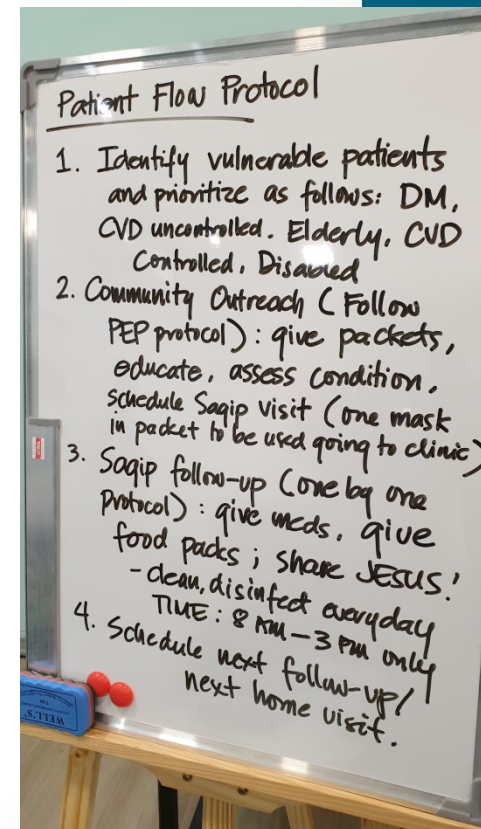 Patient Flow Protocol
1. Identify vulnerable patients
and prioritize as follows: DM,
CVD uncontrolled. Elderly, CVD
Controlled, Disabled
2. Community Outreach (Follow
PEP protocol): give packets,
educate, assess condition,
schedule Sagip visit (one mask
in packet to be used going to clinic)
3. Sagip follow-up (one by one
Protocol): give meds, give
food packs; share JESUS!
- clean, disinfect everyday
TIME: 8 AM - 3 PM only
4. Schedule next follow-up/
next home visit.
WELL'S